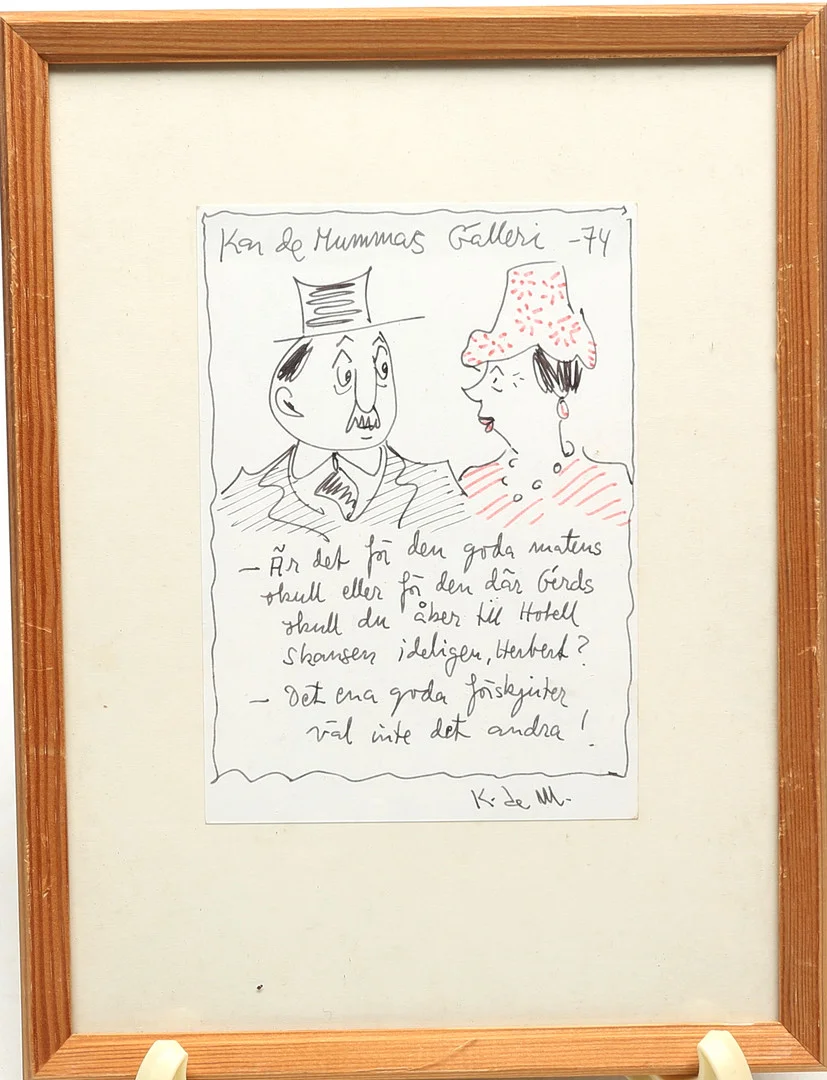 Kar de Mummas Galleri -74
- Är det för den goda matens
skull eller för den där Gerds
skull du åker till Hotell
Skansen ideligen, Herbert?
- Det ena goda förskjuter
väl inte det andra!
K. de M.